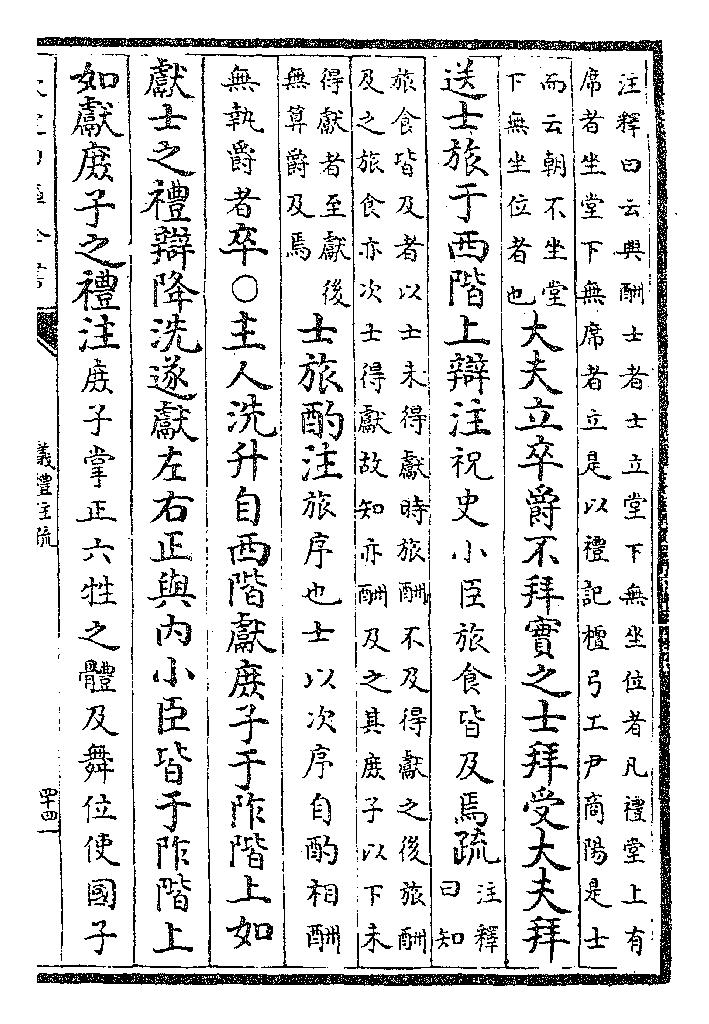 注釋曰云與酬士者士立堂下無坐位者凡禮堂上有
席者坐堂下無席者立是以禮記檀弓工尹商陽是士
而云朝不坐堂
下無坐位者也
大夫立卒爵不拜實之士拜受大夫拜
送士旅于西階上辯注
祝史小臣旅食皆及焉
疏
注釋
曰知
旅食皆及者以士未得獻時旅酬不及得獻之後旅酬
及之旅食亦次士得獻故知亦酬及之其庶子以下未
得獻者至獻後
無算爵及焉
士旅酌注
旅序也士以次序自酌相酬
無執爵者
卒○主人洗升自西階獻庶子于阼階上如
獻士之禮辯降洗遂獻左右正與內小臣皆于阼階上
如獻庶子之禮注
庶子掌正六牲之體及舞位使國子
儀禮注疏
四十四